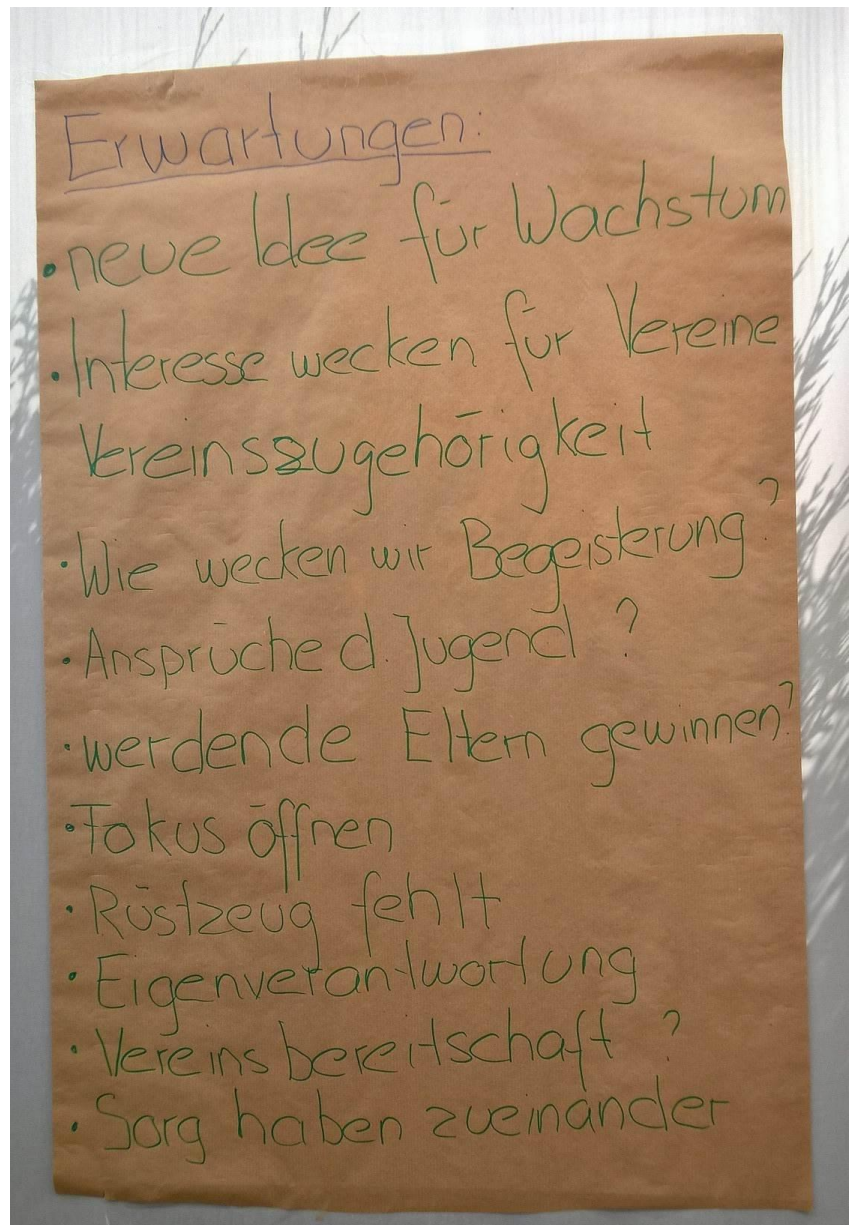 Erwartungen:
• neue Idee für Wachstum
• Interesse wecken für Vereine
Vereinszugehörigkeit
• Wie wecken wir Begeisterung?
• Ansprüche d. Jugend ?
• werdende Eltern gewinnen?
• Fokus öffnen
• Rüstzeug fehlt
• Eigenverantwortung
• Vereinsbereitschaft ?
• Sorg haben zueinander